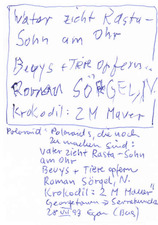 Vater zieht Rasta-
Sohn am Ohr
Beuys + Tiere opfern
Roman SÖRGEL, N.
Krokodil: 2 M Mauer
Polaroid: Polaroids, die noch
zu machen sind:
Vater zieht Rasta-Sohn
am Ohr
Beuys + Tiere opfern
Roman Sörgel, N.
Krokodil: 2 M Mauer"
Georgetown → Serrekunda
(Bus)